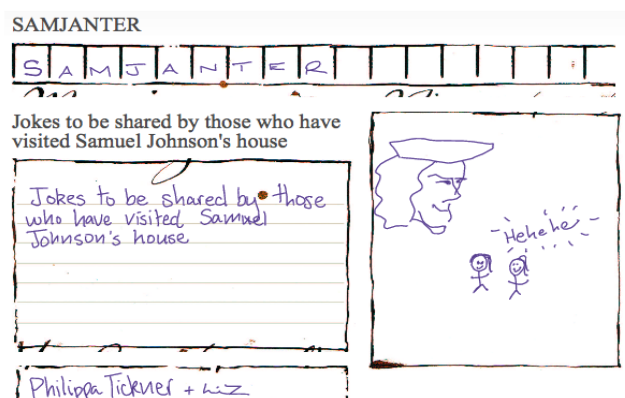 SAMJANTER
SAMJANTER
Jokes to be shared by those who have
visited Samuel Johnson's house
Jokes to be shared by those
who have visited Samuel
Johnson's house
Hehehe
Philippa Tickner + Liz